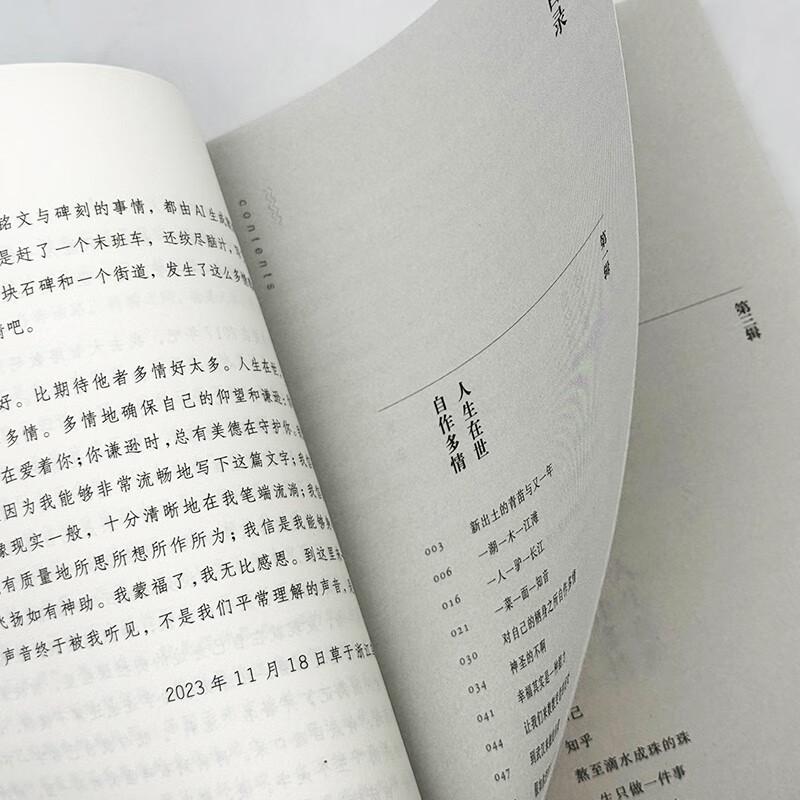 铭文与碑刻的事情，都由AI生成
是赶了一个末班车，还绞尽脑汁，
块石碑和一个街道，发生了这么多
情吧。
好。比期待他者多情好太多。人生在世，
多情。多情地确保自己的仰望和谦逊；
在爱着你；你谦逊时，总有美德在守护你。
因为我能够非常流畅地写下这篇文字；我
像现实一般，十分清晰地在我笔端流淌；我
有质量地所思所想所作所为；我信是我能够
飞扬如有神助。我蒙福了，我无比感恩。到这里
声音终于被我听见，不是我们平常理解的声音，
2023年11月18日草于浙江
目录
contents
第一辑
人生在世
自作多情
003 新出土的青苗与又一年
006 一湖一木一江滩
016 一人一驴一长江
021 一菜一面一知音
030 对自己的栖身之所自作多情
034 神圣的不啊
041 幸福其实是一种能力
044 让我们来
047 到武汉来
第三辑
己
知乎
熬至滴水成珠的珠
生只做一件事